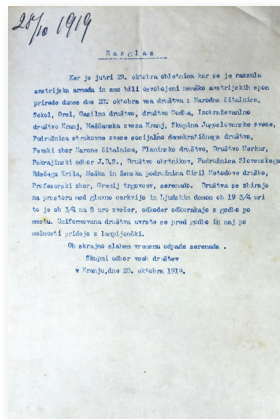 28/10 1919
Razglas
Ker je jutri 29. oktobra obletnica kar se je razsula
avstrijska armada in smo bili osvobojeni nemško avstrijskih spon
priredé danes dne 28. oktobra vsa društva z Narodna čitalnica,
Sokol, Orel, Gasilno društvo, društvo Godba, Izobraževalno
društvo Kranj, Meščanska zveza Kranj, Skupina Jugoslovanske zveze,
Podružnica strokovne zveze socijalno demokratičnega društva,
Pevski zbor Narone čitalnice, Planinsko društvo, Društvo Merkur,
Pokrajinski odbor J.D.S., Društvo obrtnikov, Podružnica Slovenskega
Rdečega križa, Moška in ženska podružnica Ciril Metodove družbe,
Profesorski zbor, Gremij trgovcev, serenado. Društva se zbirajo
na prostoru med glavno cerkvijo in Ljudskim domom ob 19 3/4 uri
to je ob 3/4 na 8 uro zvečer, odkoder odkorakajo z godbo po
mestu. Uniformovana društva uvrste se pred godbo in naj po
možnosti pridejo z lampijončki.
Ob skrajno slabem vremenu odpade serenada .
Skupni odbor vseh društev
v Kranju, dne 28. oktobra 1919.